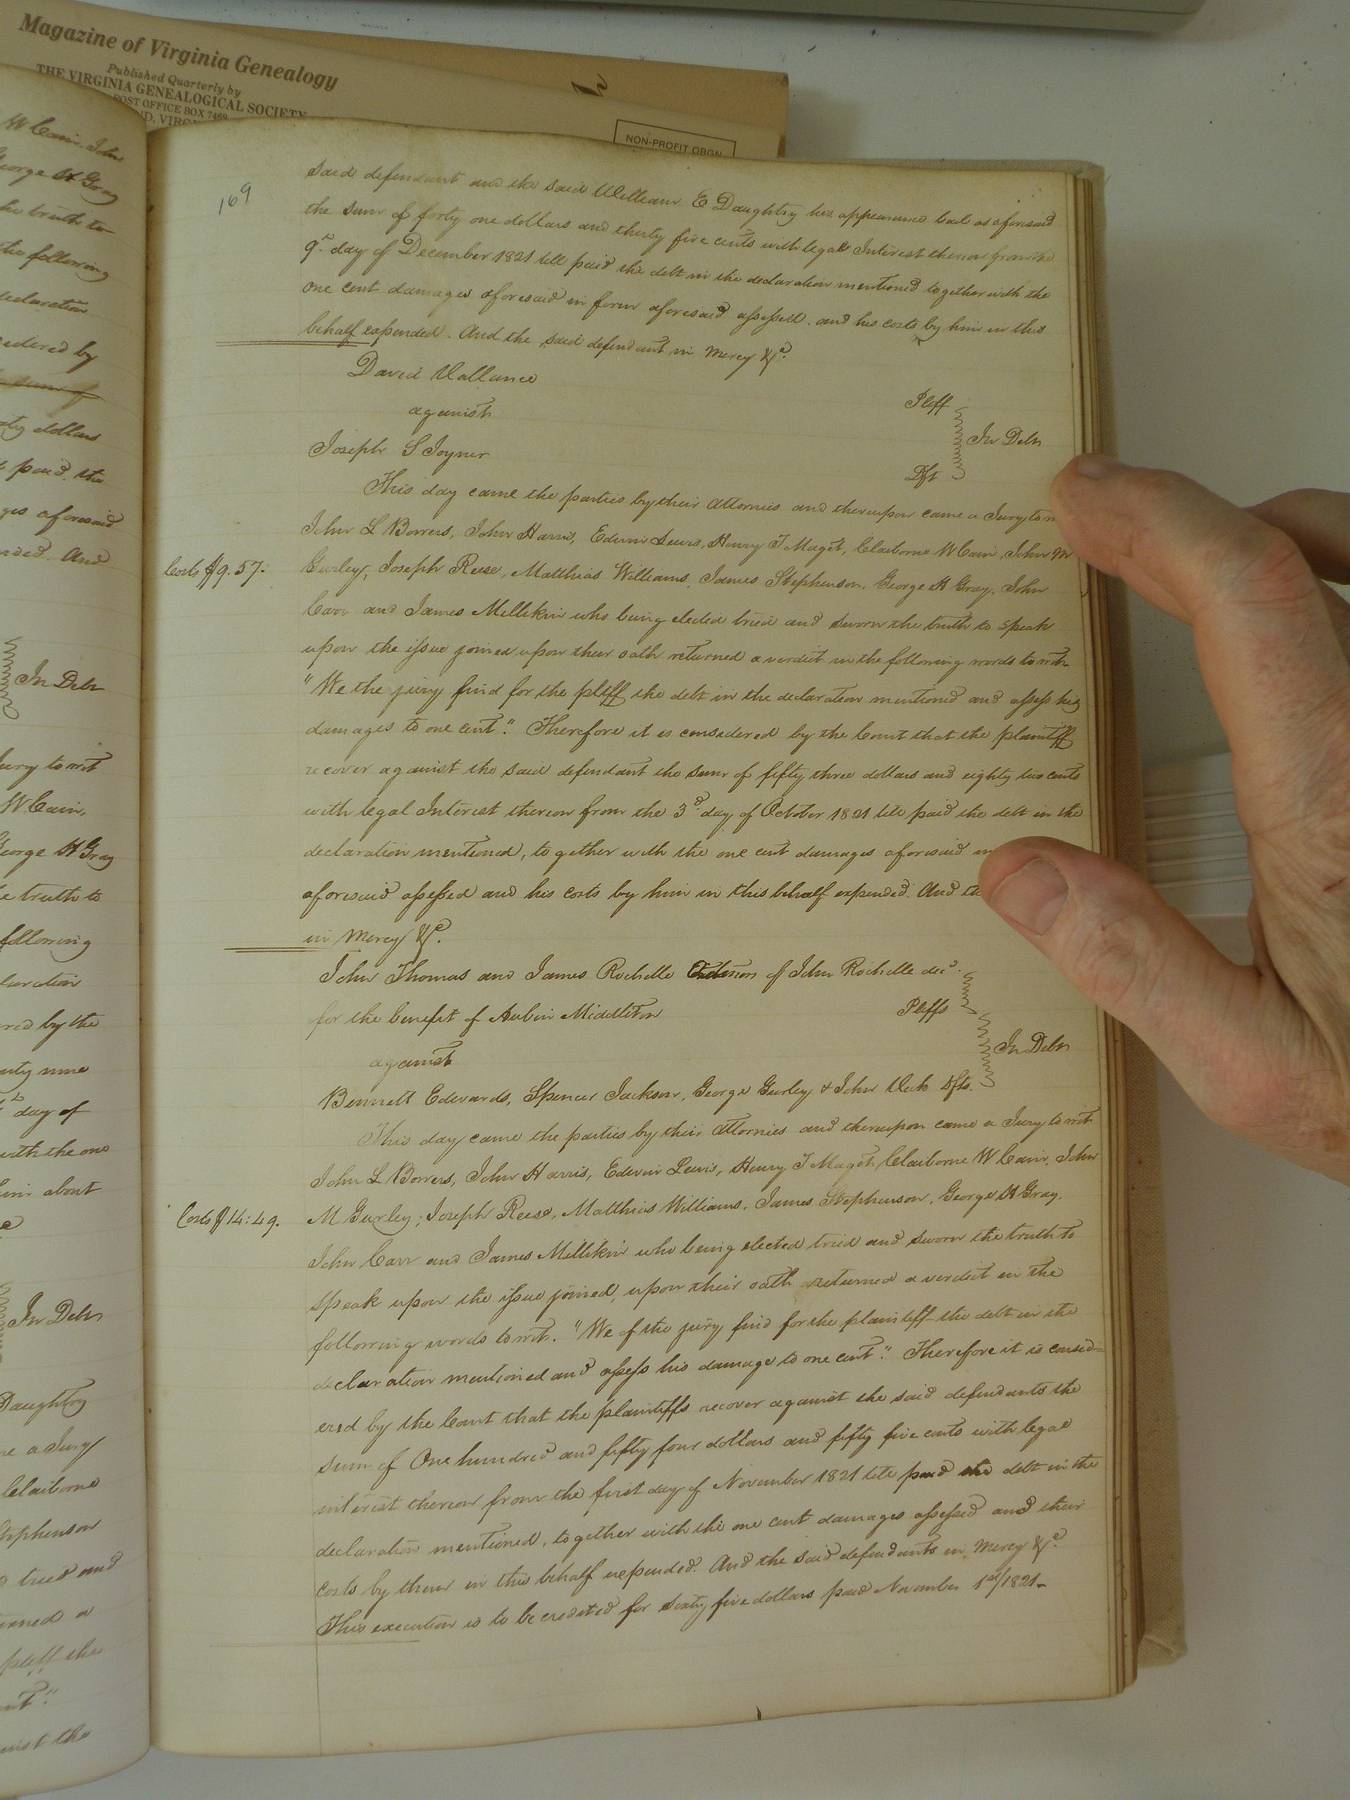 Magazine of Virginia Genealogy
Published Quarterly by
THE VIRGINIA GENEALOGICAL SOCIETY
POST OFFICE BOX 7469
NON-PROFIT ORGN
W Cain, John
George H Gray
the truth to
the following
declaration
sidered by
sum of
dollars
paid the
aforesaid
And
In Debt
Jury to wit
W Cain,
George H Gray
truth to
following
by the
nine
day of
with the one
about
In Debt
Daughtry
a Jury
Claiborne
Stephenson
tried and
a
pltff the
the
169
said defendant and the said William E Daughtry his appearance bail as aforesaid
the sum of forty one dollars and thirty five cents with legal Interest thereon from the
9th day of December 1821 till paid the debt in the declaration mentioned together with the
one cent damages aforesaid in form aforesaid assessed. and his costs by him in this
behalf expended. And the said defendant in Mercy &c.
David Vallance
Pltff
against
In Debt
Joseph S Joyner
Dft
This day came the parties by their attornies and thereupon came a Jury to w
John L Bowers, John Harris, Edwin Lewis, Henry T Maget, Claiborne W Cain, John M
Costs $9.57.
Gurley, Joseph Reese, Matthias Williams, James Stephenson, George H Gray, John
Carr and James Millikin who being elected tried and sworn the truth to speak
upon the issue joined upon their oath returned a verdict in the following words to wit
"We the jury find for the pltff the debt in the declaration mentioned and assess his
damages to one cent". Therefore it is considered by the Court that the plaintiff
recover against the said defendant the sum of fifty three dollars and eighty two cents
with legal Interest thereon from the 3d day of October 1821 till paid the debt in the
declaration mentioned, together with the one cent damages aforesaid in
aforesaid assessed and his costs by him in this behalf expended. And th
in Mercy &c.
John Thomas and James Rochelle of John Rochelle decd.
for the benefit of Aubin Middleton
Pltffs
against
In Debt
Bennett Edwards, Spencer Jackson, George Gurley & John Vick Dfts.
This day came the parties by their attornies and thereupon came a Jury to wit
John L Bowers, John Harris, Edwin Lewis, Henry T Maget, Claiborne W Cain, John
Costs $14:49.
M Gurley, Joseph Reese, Matthias Williams, James Stephenson, George H Gray,
John Carr and James Millikin who being elected tried and sworn the truth to
speak upon the issue joined, upon their oath returned a verdict in the
following words to wit. "We of the jury find for the plaintiff the debt in the
declaration mentioned and assess his damage to one cent". Therefore it is consid=
ered by the Court that the plaintiffs recover against the said defendants the
sum of One hundred and fifty four dollars and fifty five cents with legal
interest thereon from the first day of November 1821 till paid the debt in the
declaration mentioned, together with the one cent damages assessed and their
costs by them in this behalf expended. And the said defendants in Mercy &c.
This execution is to be credited for sixty five dollars paid November 1st/1821-